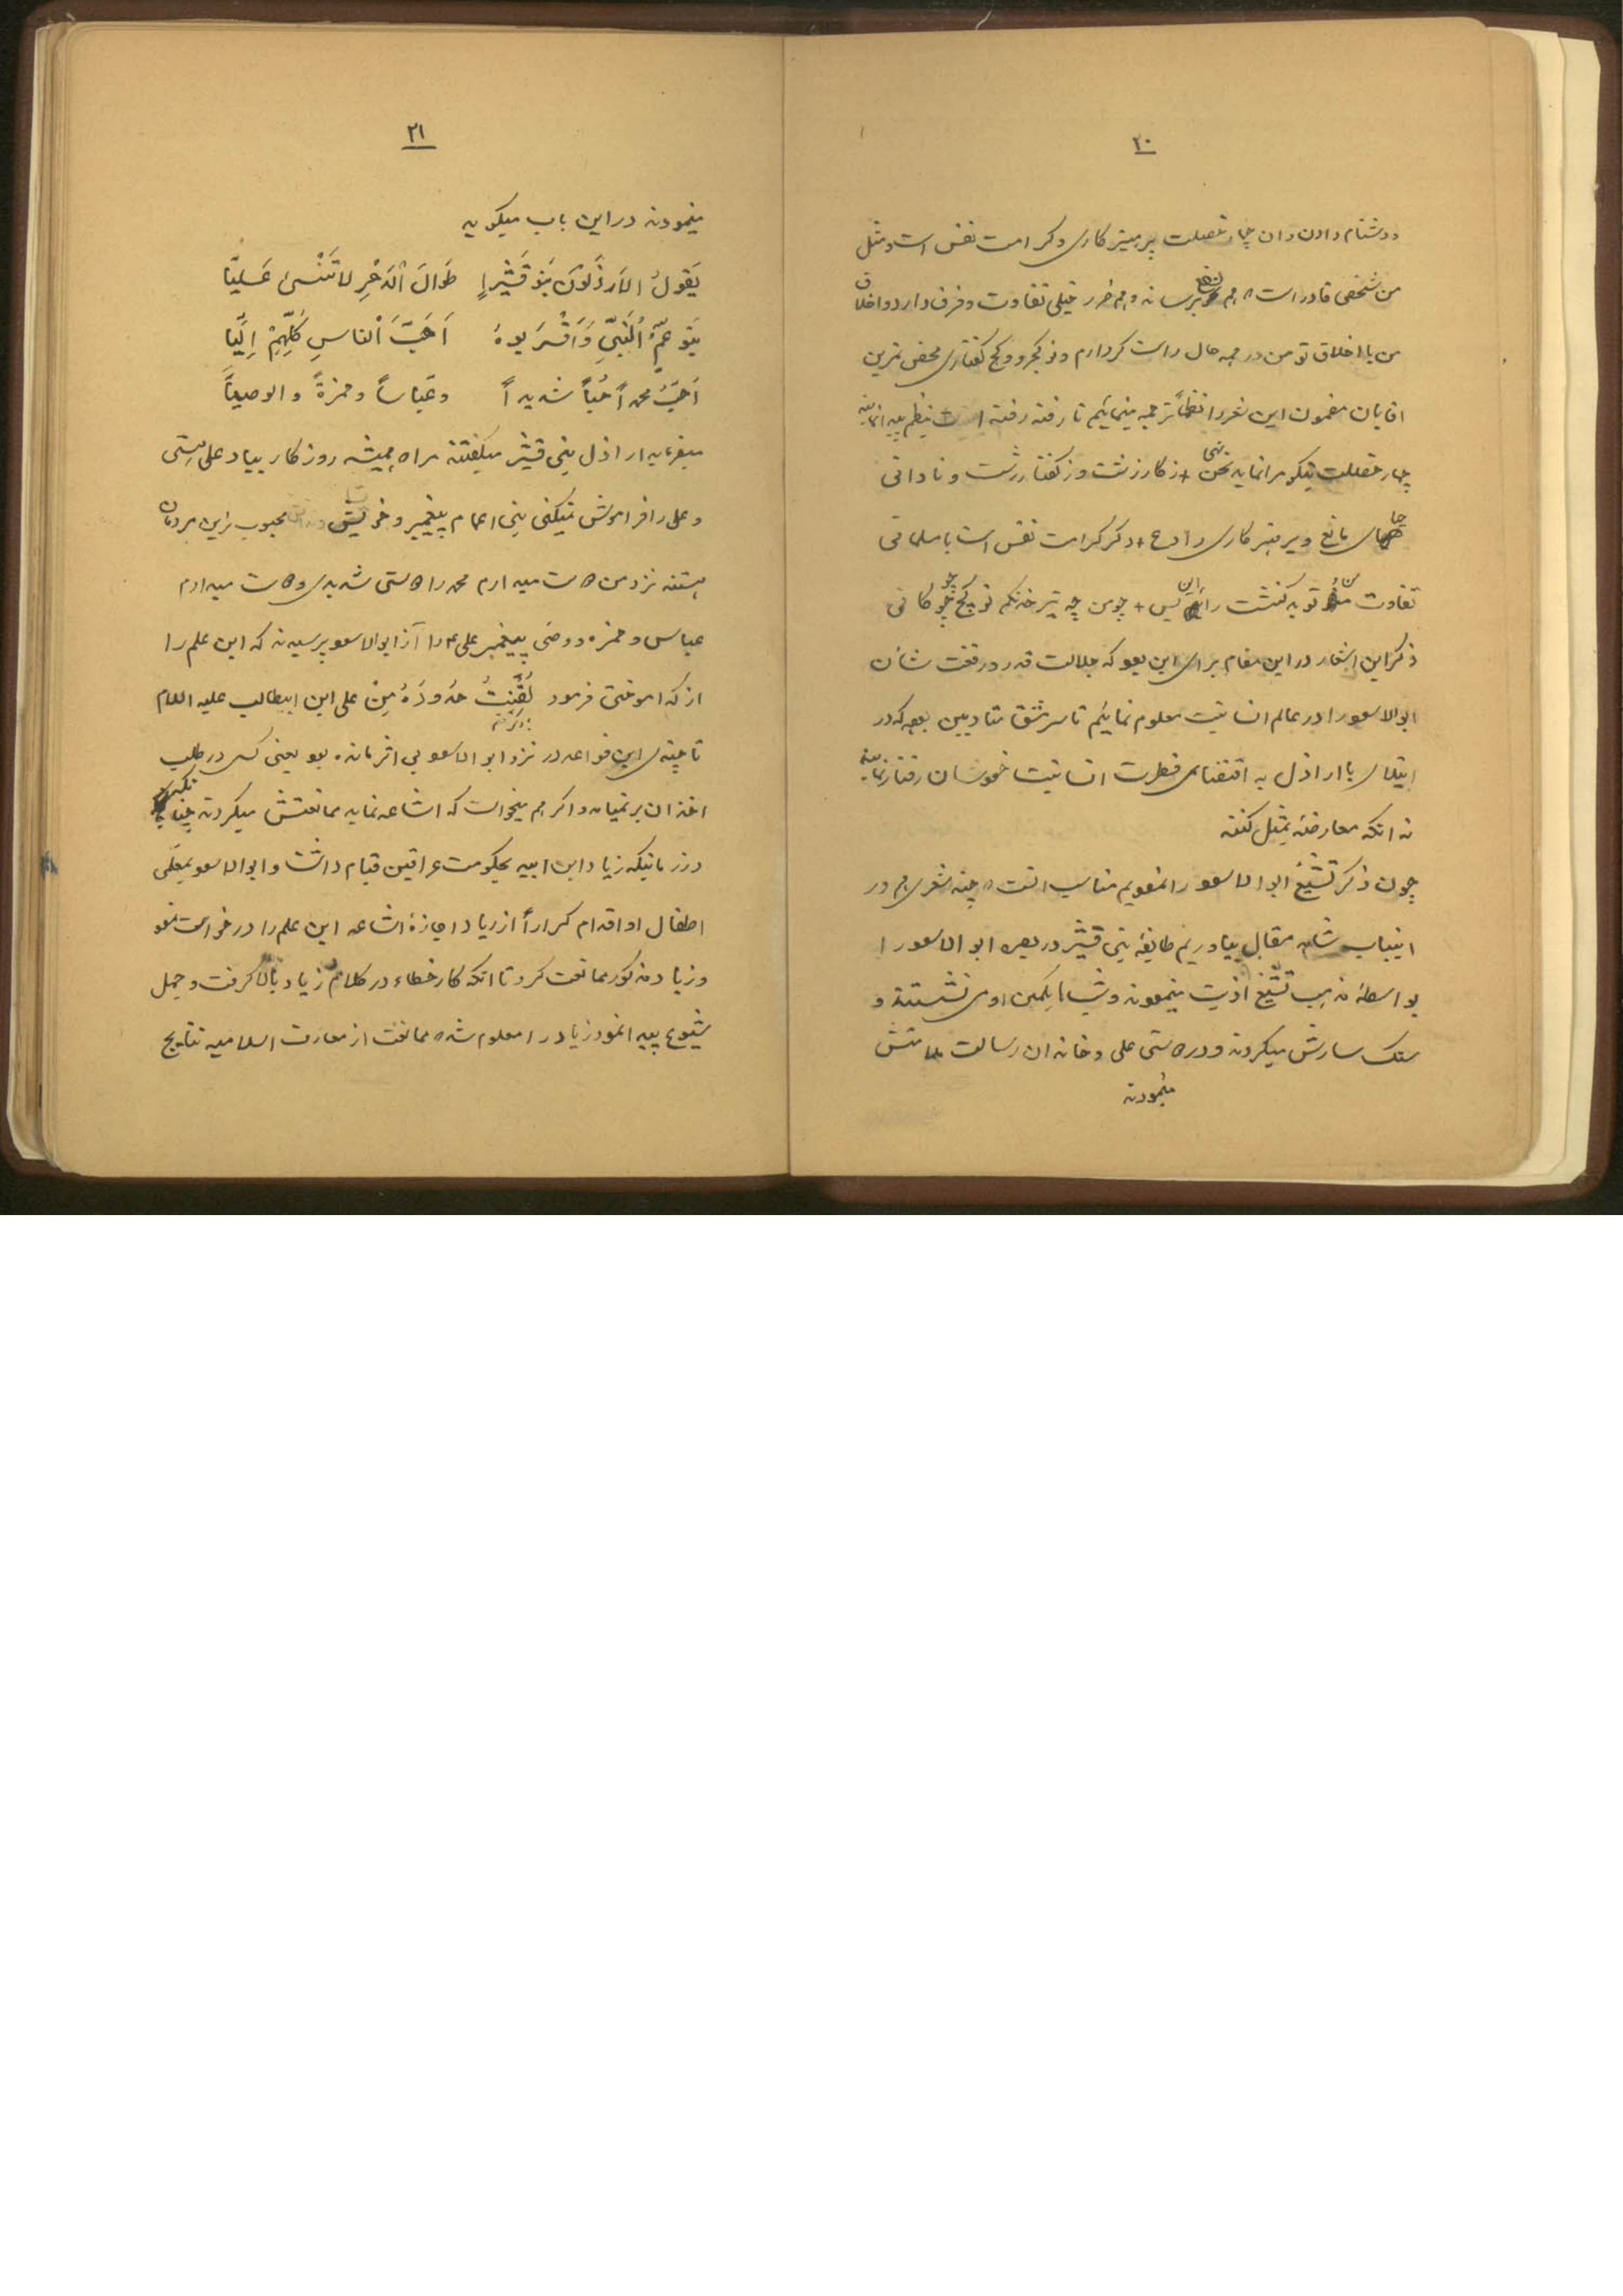 ۲۰
ودشنام دادن وان چهار خصلت پرهیز کاری وکرامت نفس است ومثل
من شخصی قادر است هم نفع برساند وهم ضرر خیلی تفاوت وفرق دارد واخلاق
من با اخلاق تو من در همه حال راست کردارم وتو کجرو وکج گفتاری محض تمرین
اقایان مضمون این شعر را نظماً ترجمه مینمائیم تا رفته رفته بنظم پیدا نمایند
چهار خصلت نیکو مرا نماید نهی + ز کار زشت وز گفتار زشت ونادانی
حیای مانع وپرهیز کاری رادع + دگر کرامت نفس است با مسلمانی
تفاوت من وتو به گذشت را این بس + چو من چه تیر خدنگم تو کج چو کمانی
ذکر این اشعار در این مقام برای این بود که جلالت قدر ورفعت شان
ابوالاسود را در عالم انسانیت معلوم نمائیم تا سرمشق متادبین بوده که در
ابتلای با اراذل به اقتضای فطرت انسانیت خودشان رفتار نمایند
نه انکه معارضه بمثل کنند
چون ذکر تشیع ابوالاسود را نمودیم مناسب است چند شعری هم در
اینباب شاهد مقال بیاوریم طایفهٔ بنی قشیر در بصره ابوالاسود را
بواسطهٔ مذهب تشیع اذیت مینمودند وشبها بکمین اومی نشستند و
سنگ سارش میکردند ودر دوستی علی وخاندان رسالت ملامتش
مینمودند
۲۱
مینمودند در این باب میگوید
یَقولُ الاَرذَلونَ بَنو قُشَیْرٍ طَوالَ الدَهْرِ لا تَنْسیٰ عَلیّا
بَنو عَمِّ النَبِّیِ وَاَقْرَبوهُ اَحَبُّ الناسِ کُلِّهِمْ اِلَیّا
اُحِبُّ محمداً حُبّاً شدیداً وعَبّاساً وحمزةً والوصیّا
میفرماید اراذل بنی قشیر میگفتند مراد همیشه روزگار بیاد علی هستی
وعلی را فراموش نمیکنی بنی اعمام پیغمبر وخویشان محبوب ترین مردمان
هستند نزد من دوست میدارم محمد را دوستی شدیدی ودوست میدارم
عباس وحمزه ووصی پیغمبر علی ع را از ابوالاسود پرسیدند که این علم را
از که اموختی فرمود لُقِّنتُ حُدودَهُ مِنْ علی ابن ابیطالب علیه السلام
تا چندی این قواعد در نزد ابوالاسود بی اثر مانده بود یعنی کسی در طلب
اخذ ان برنمیامد واگر هم میخواست که اشاعه نماید ممانعتش میکردند چنانچه
در زمانیکه زیاد ابن ابیه بحکومت عراقین قیام داشت وابوالاسود بمعلّمی
اطفال او اقدام کراراً از زیاد اجازهٔ اشاعه این علم را درخواست نمود
وزیاد مذکور ممانعت کرد تا انکه کار خطاء در کلام زیاد بالا گرفت وجهل
شیوع پیدا نمود زیاد را معلوم شد ممانعت از معارف اسلامیه نتایج